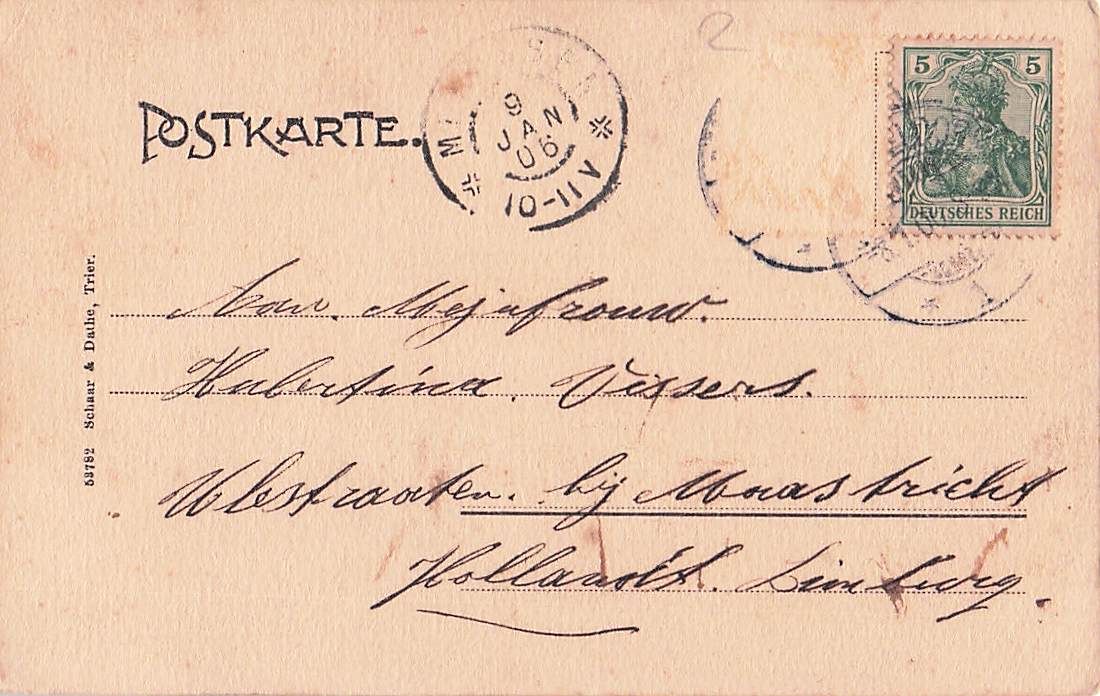 2
POSTKARTE.
9
JAN
06
10-11 V
5 5
DEUTSCHES REICH
53782 Schaar & Dathe, Trier.
Aan. Mejufrouw.
Hubertina. Vissers.
Ulestraaten. bij Maastricht
Hollandst. Limburg.